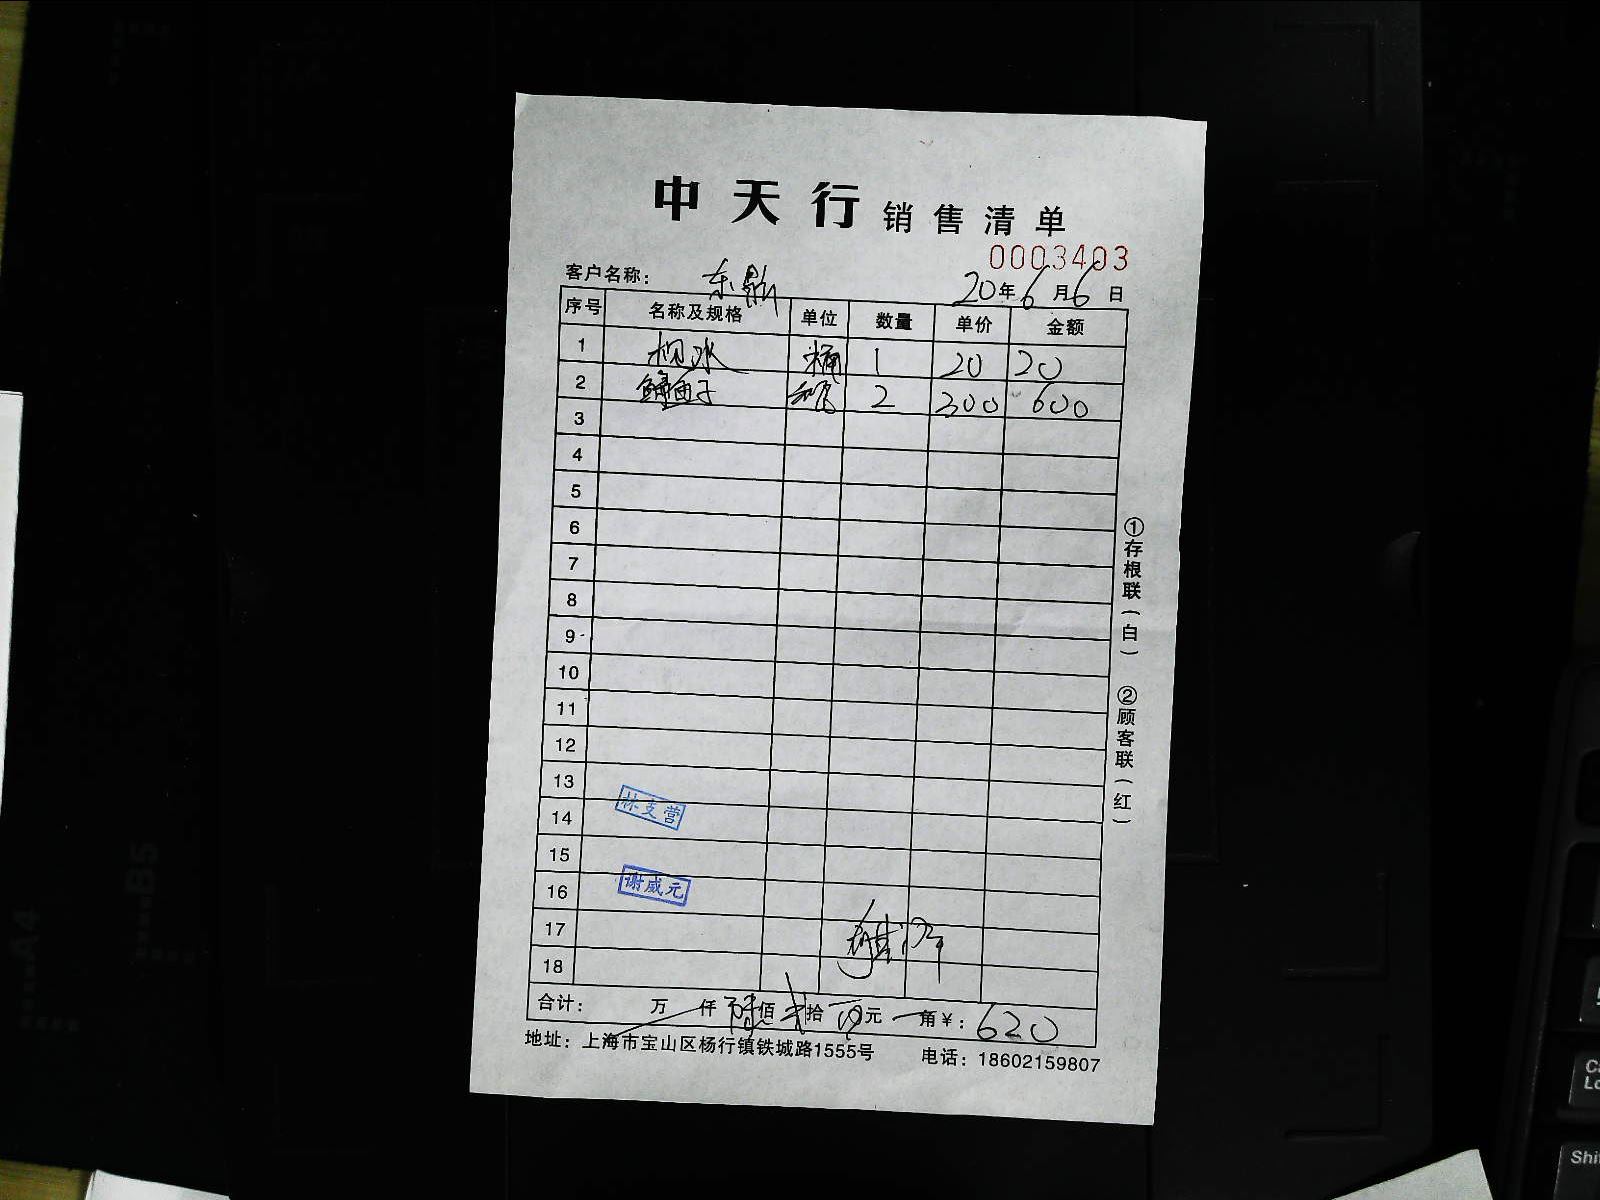 中天行 销售清单
0003403
客户名称： 东勘 20年6月6日
序号 名称及规格 单位 数量 单价 金额
1 枧水 桶 1 20 20
2 鱼子 瓶 2 300 600
3
4
5
6
7
8
9
10
11
12
13
14 林支营
15
16 谢威元
17
18
合计： 万 仟 陆佰 贰拾 元 角￥：620
地址：上海市宝山区杨行镇铁城路1555号 电话：18602159807
①存根联（白）
②顾客联（红）
A4
B5
Shi